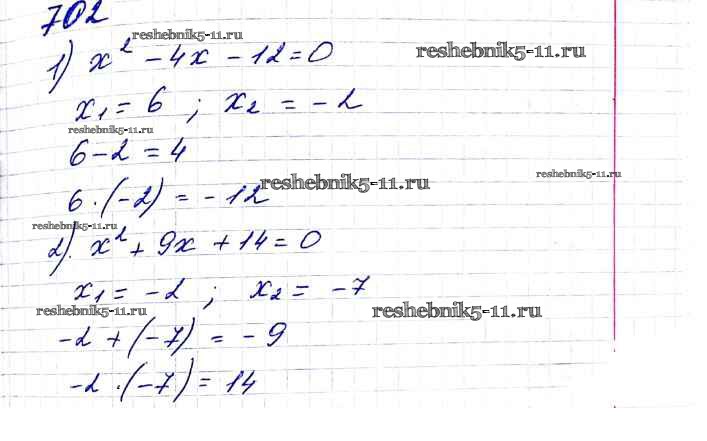 702
reshebnik5-11.ru
1) x² - 4x - 12 = 0
reshebnik5-11.ru
x₁ = 6 ; x₂ = -2
reshebnik5-11.ru
6 - 2 = 4
reshebnik5-11.ru
reshebnik5-11.ru
6 · (-2) = -12
reshebnik5-11.ru
2). x² + 9x + 14 = 0
x₁ = -2 ; x₂ = -7
reshebnik5-11.ru
reshebnik5-11.ru
-2 + (-7) = -9
-2 · (-7) = 14